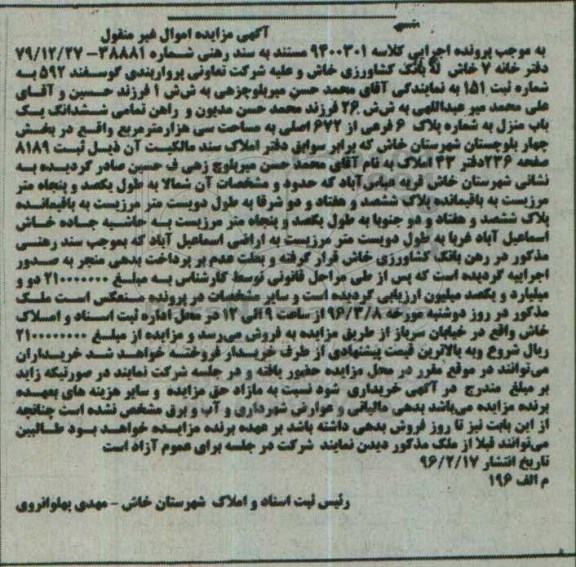 آگهی مزایده اموال غیر منقول
به موجب پرونده اجرایی کلاسه ۹۳۰۰۳۰۱ مستند به سند رهنی شماره ۳۸۸۸۱- ۷۹/۱۲/۲۷
دفتر خانه ۷ خاش له بانک کشاورزی خاش و علیه شرکت تعاونی پرواربندی گوسفند ۵۹۲ به
شماره ثبت ۱۵۱ به نمایندگی آقای محمد حسن میربلوچزهی به ش ش ۱ فرزند حسین و آقای
علی محمد میر عبداللهی به ش ش ۲۶ فرزند محمد حسن مدیون و راهن تمامی ششدانگ یک
باب منزل به شماره پلاک ۶ فرعی از ۶۷۲ اصلی به مساحت سی هزارمترمربع واقع در بخش
چهار بلوچستان شهرستان خاش که برابر سوابق دفتر املاک سند مالکیت آن ذیل ثبت ۸۱۸۹
صفحه ۲۳۶دفتر ۴۳ املاک به نام آقای محمد حسن میربلوچ زهی ف حسین صادر گردیده به
نشانی شهرستان خاش قریه عباس آباد که حدود و مشخصات آن شمالا به طول یکصد و پنجاه متر
مرزیست به باقیمانده پلاک ششصد و هفتاد و دو شرقا به طول دویست متر مرزیست به باقیمانده
پلاک ششصد و هفتاد و دو جنوبا به طول یکصد و پنجاه متر مرزیست به حاشیه جاده خاش
اسماعیل آباد غربا به طول دویست متر مرزیست به اراضی اسماعیل آباد که بموجب سند رهنی
مذکور در رهن بانک کشاورزی خاش قرار گرفته و بعلت عدم بر پرداخت بدهی منجر به صدور
اجراییه گردیده است که پس از طی مراحل قانونی توسط کارشناس به مبلغ ۲۱۰۰۰۰۰۰۰۰ دو و
میلیارد و یکصد میلیون ارزیابی گردیده است و سایر مشخصات در پرونده منعکس است ملک
مذکور در روز دوشنبه مورخه ۹۶/۳/۸ از ساعت ۹ الی ۱۲ در محل اداره ثبت اسناد و املاک
خاش واقع در خیابان سرباز از طریق مزایده به فروش می‌رسد و مزایده از مبلغ ۲۱۰۰۰۰۰۰۰۰
ریال شروع وبه بالاترین قیمت پیشنهادی از طرف خریدار فروخته خواهد شد خریداران
می‌توانند در موقع مقرر در محل مزایده حضور یافته و در جلسه شرکت نمایند در صورتیکه زاید
بر مبلغ مندرج در آگهی خریداری شود نسبت به مازاد حق مزایده و سایر هزینه های بعهده
برنده مزایده می‌باشد بدهی مالیاتی و عوارض شهرداری و آب و برق مشخص نشده است چنانچه
از این بابت نیز تا روز فروش بدهی داشته باشد بر عهده برنده مزایده خواهد بود طالبین
می‌توانند قبلا از ملک مذکور دیدن نمایند شرکت در جلسه برای عموم آزاد است
تاریخ انتشار ۹۶/۲/۱۷
م الف ۱۹۶
رئیس ثبت اسناد و املاک شهرستان خاش - مهدی پهلوانروی